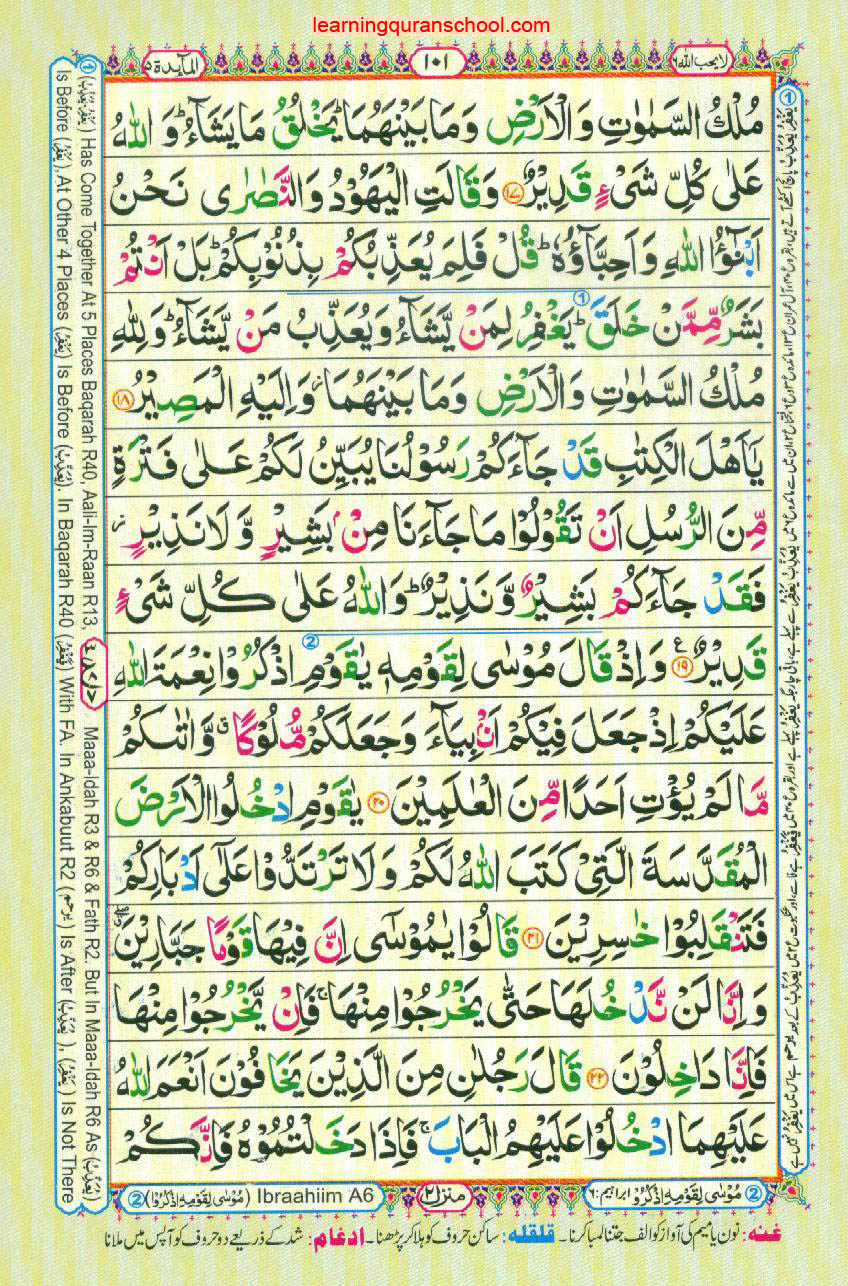 learningquranschool.com
لا يحب الله ٦
١٠١
المآىِٕدة ٥
مُلْكُ السَّمٰوٰتِ وَالْاَرْضِ وَمَا بَيْنَهُمَا ؕ يَخْلُقُ مَا يَشَآءُ ؕ وَ اللّٰهُ
عَلٰى كُلِّ شَىْءٍ قَدِيْرٌ ۝١٧ وَقَالَتِ الْيَهُوْدُ وَالنَّصٰرٰى نَحْنُ
اَبْنٰٓؤُا اللّٰهِ وَاَحِبَّآؤُهٗ ؕ قُلْ فَلِمَ يُعَذِّبُكُمْ بِذُنُوْبِكُمْ ؕ بَلْ اَنْتُمْ
بَشَرٌ مِّمَّنْ خَلَقَ ؕ يَغْفِرُ لِمَنْ يَّشَآءُ وَيُعَذِّبُ مَنْ يَّشَآءُ ؕ وَلِلّٰهِ
مُلْكُ السَّمٰوٰتِ وَالْاَرْضِ وَمَا بَيْنَهُمَا ۫ وَاِلَيْهِ الْمَصِيْرُ ۝١٨
يٰۤاَهْلَ الْكِتٰبِ قَدْ جَآءَكُمْ رَسُوْلُنَا يُبَيِّنُ لَكُمْ عَلٰى فَتْرَةٍ
مِّنَ الرُّسُلِ اَنْ تَقُوْلُوْا مَا جَآءَنَا مِنْۢ بَشِيْرٍ وَّلَا نَذِيْرٍ ۫
فَقَدْ جَآءَكُمْ بَشِيْرٌ وَّنَذِيْرٌ ؕ وَاللّٰهُ عَلٰى كُلِّ شَىْءٍ
قَدِيْرٌ ۝١٩ وَاِذْ قَالَ مُوْسٰى لِقَوْمِهٖ يٰقَوْمِ اذْكُرُوْا نِعْمَةَ اللّٰهِ
عَلَيْكُمْ اِذْ جَعَلَ فِيْكُمْ اَنْۢبِيَآءَ وَجَعَلَكُمْ مُّلُوْكًا ۖ وَّاٰتٰىكُمْ
مَّا لَمْ يُؤْتِ اَحَدًا مِّنَ الْعٰلَمِيْنَ ۝٢٠ يٰقَوْمِ ادْخُلُوا الْاَرْضَ
الْمُقَدَّسَةَ الَّتِىْ كَتَبَ اللّٰهُ لَكُمْ وَلَا تَرْتَدُّوْا عَلٰٓى اَدْبَارِكُمْ
فَتَنْقَلِبُوْا خٰسِرِيْنَ ۝٢١ قَالُوْا يٰمُوْسٰٓى اِنَّ فِيْهَا قَوْمًا جَبَّارِيْنَ
وَاِنَّا لَنْ نَّدْخُلَهَا حَتّٰى يَخْرُجُوْا مِنْهَا ۚ فَاِنْ يَّخْرُجُوْا مِنْهَا
فَاِنَّا دَاخِلُوْنَ ۝٢٢ قَالَ رَجُلٰنِ مِنَ الَّذِيْنَ يَخَافُوْنَ اَنْعَمَ اللّٰهُ
عَلَيْهِمَا ادْخُلُوْا عَلَيْهِمُ الْبَابَ ۚ فَاِذَا دَخَلْتُمُوْهُ فَاِنَّكُمْ
② مُوْسٰى لِقَوْمِهِ اذْكُرُوْا ابراہیم:٦
منزل٢
② (مُوْسٰى لِقَوْمِهِ اذْكُرُوْا) Ibraahiim A6
غنه: نون یا میم کی آواز کو الف جتنا لمبا کرنا۔ قلقله: ساکن حروف کو ہلا کر پڑھنا۔ ادغام: شد کے ذریعے دو حروف کو آپس میں ملانا
① (يَغْفِرُ يُعَذِّبُ) Has Come Together At 5 Places Baqarah R40, Aali-Im-Raan R13, Maaa-Idah R3 & R6 & Fath R2. But In Maaa-Idah R6 As (يُعَذِّبُ)
Is Before (يَغْفِرُ). At Other 4 Places (يَغْفِرُ) Is Before (يُعَذِّبُ). In Baqarah R40 (فَيَغْفِرُ) With FA. In Ankabuut R2 (يرحم) Is After (يُعَذِّبُ), (يَغْفِرُ) Is Not There